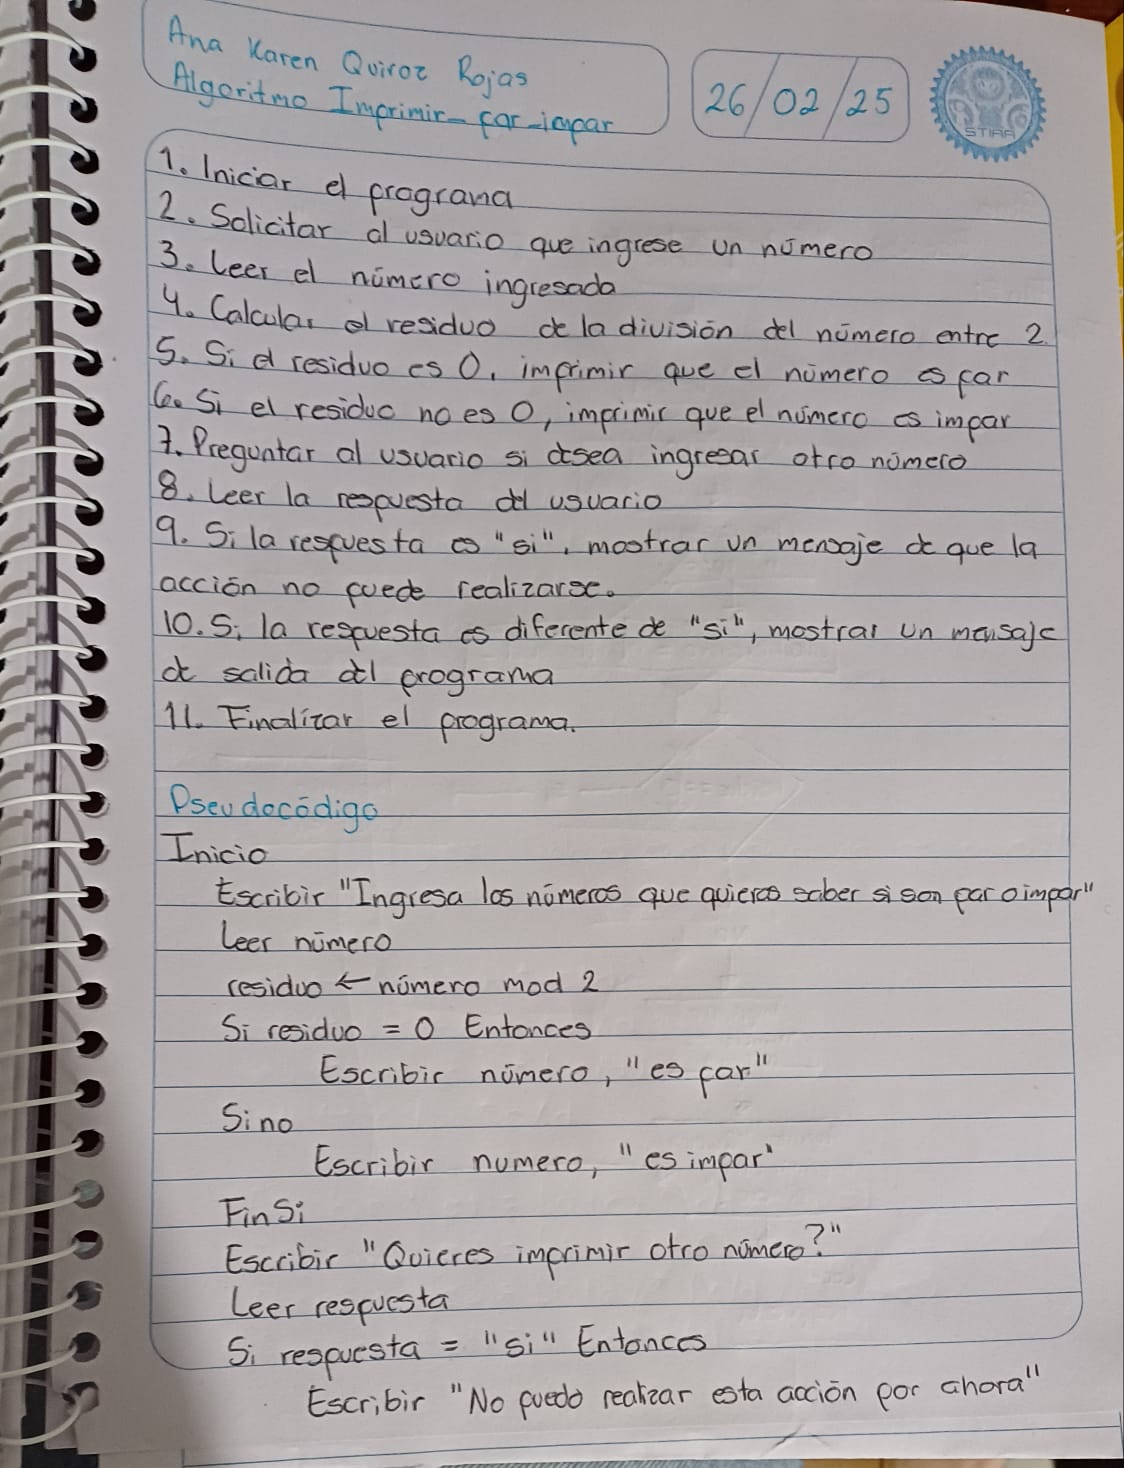 Ana Karen Quiroz Rojas
Algoritmo Imprimir-par-impar
26/02/25
STIAA
1. Iniciar el programa
2. Solicitar al usuario que ingrese un número
3. Leer el número ingresado
4. Calcular el residuo de la división del número entre 2
5. Si el residuo es 0, imprimir que el número es par
6. Si el residuo no es 0, imprimir que el número es impar
7. Preguntar al usuario si desea ingresar otro número
8. Leer la respuesta del usuario
9. Si la respuesta es "si", mostrar un mensaje de que la
acción no puede realizarse.
10. Si la respuesta es diferente de "si", mostrar un mensaje
de salida del programa
11. Finalizar el programa.
Pseudocódigo
Inicio
Escribir "Ingresa los números que quieres saber si son par o impar"
Leer número
residuo ← número mod 2
Si residuo = 0 Entonces
Escribir número, "es par"
Sino
Escribir numero, "es impar"
FinSi
Escribir "Quieres imprimir otro número?"
Leer respuesta
Si respuesta = "si" Entonces
Escribir "No puedo realizar esta acción por ahora"